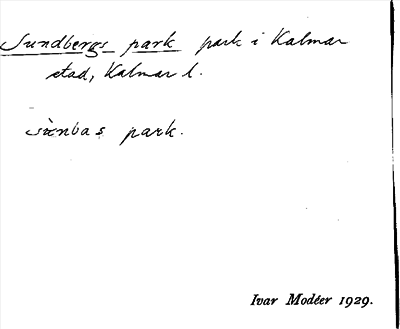 Sundbergs park park i Kalmar
stad, Kalmar l.
sùnbas park.
Ivar Modéer 1929.